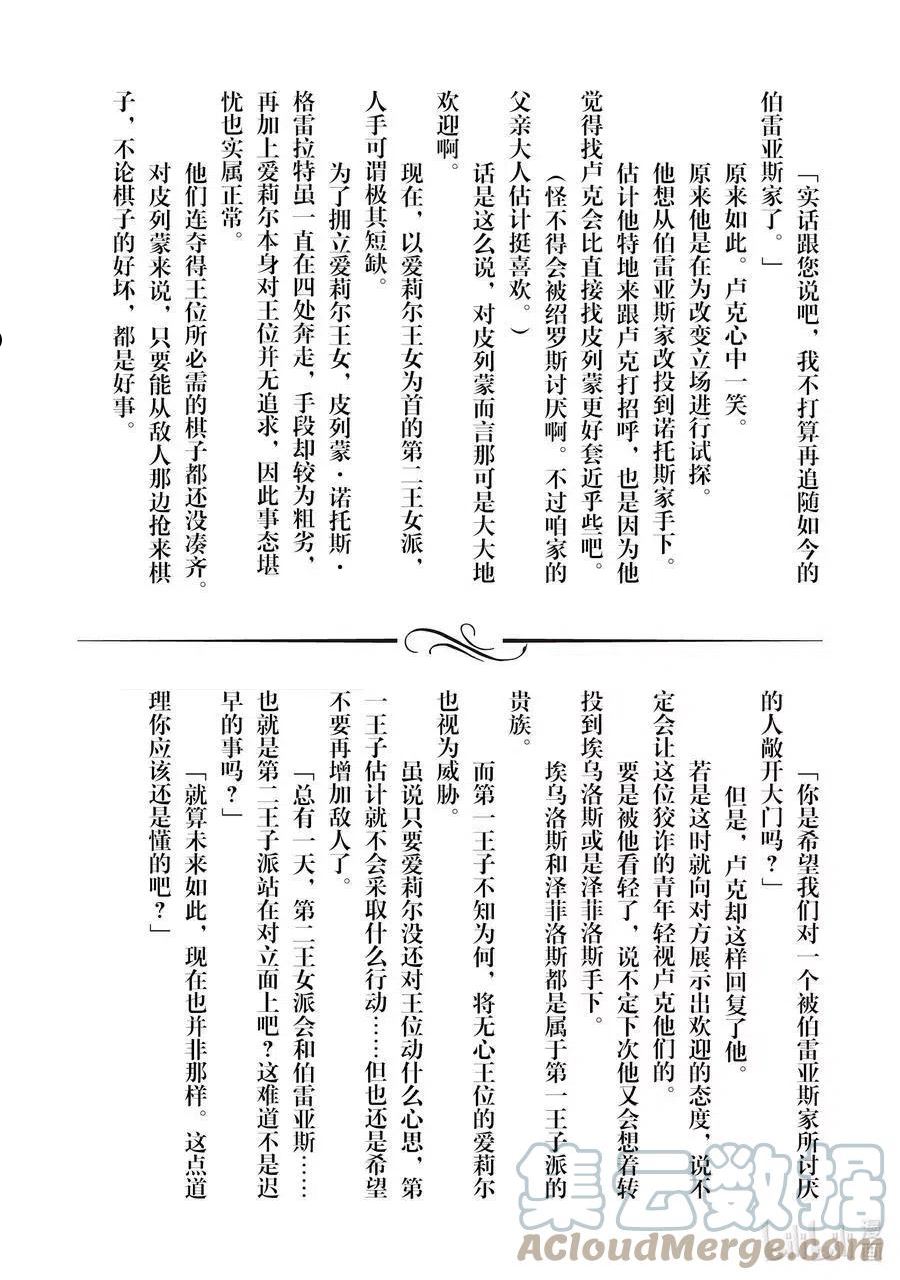 「实话跟您说吧，我不打算再追随如今的
伯雷亚斯家了。」
原来如此。卢克心中一笑。
原来他是在为改变立场进行试探。
他想从伯雷亚斯家改投到诺托斯家手下。
估计他特地来跟卢克打招呼，也是因为他
觉得找卢克会比直接找皮列蒙更好套近乎些吧。
（怪不得会被绍罗斯讨厌啊。不过咱家的
父亲大人估计挺喜欢。）
话是这么说，对皮列蒙而言那可是大大地
欢迎啊。
现在，以爱莉尔王女为首的第二王女派，
人手可谓极其短缺。
为了拥立爱莉尔王女，皮列蒙·诺托斯·
格雷拉特虽一直在四处奔走，手段却较为粗劣，
再加上爱莉尔本身对王位并无追求，因此事态堪
忧也实属正常。
他们连夺得王位所必需的棋子都还没凑齐。
对皮列蒙来说，只要能从敌人那边抢来棋
子，不论棋子的好坏，都是好事。
「你是希望我们对一个被伯雷亚斯家所讨厌
的人敞开大门吗？」
但是，卢克却这样回复了他。
若是这时就向对方展示出欢迎的态度，说不
定会让这位狡诈的青年轻视卢克他们的。
要是被他看轻了，说不定下次他又会想着转
投到埃乌洛斯或是泽菲洛斯手下。
埃乌洛斯和泽菲洛斯都是属于第一王子派的
贵族。
而第一王子不知为何，将无心王位的爱莉尔
也视为威胁。
虽说只要爱莉尔没还对王位动什么心思，第
一王子估计就不会采取什么行动……但也还是希望
不要再增加敌人了。
「总有一天，第二王女派会和伯雷亚斯……
也就是第二王子派站在对立面上吧？这难道不是迟
早的事吗？」
「就算未来如此，现在也并非那样。这点道
理你应该还是懂的吧？」
集云数据
ACloudMerge.com